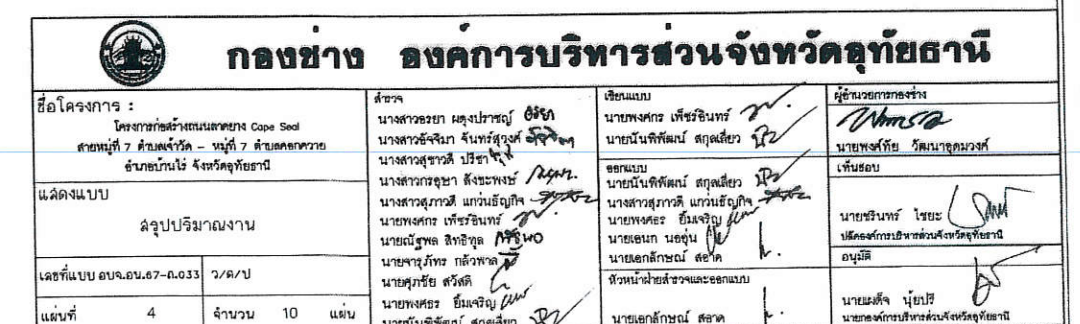 กองช่าง องค์การบริหารส่วนจังหวัดอุทัยธานี
ชื่อโครงการ :
โครงการก่อสร้างถนนลาดยาง Cape Seal
สายหมู่ที่ 7 ตำบลเจ้าวัด - หมู่ที่ 7 ตำบลคอกควาย
อำเภอบ้านไร่ จังหวัดอุทัยธานี
แสดงแบบ
สรุปปริมาณงาน
เลขที่แบบ อบจ.อน.67-ถ.033
ว/ด/ป
แผ่นที่ 4
จำนวน 10 แผ่น
สำรวจ
นางสาวอรยา ผดุงปราชญ์
นางสาวอัจจิมา จันทร์สุวงศ์
นางสาวสุชาวดี ปรีชา
นางสาวกรอุษา สังขะพงษ์
นางสาวสุภาวดี แก่นธัญกิจ
นายพงศกร เพ็ชรอินทร์
นายณัฐพล สิทธิกูล
นายจารุภัทร กลัวพาล
นายศุภชัย สวัสดิ์
นายพงศธร ยิ้มเจริญ
นายนันพิพัฒน์ สกุลเสี่ยว
เขียนแบบ
นายพงศกร เพ็ชรอินทร์
นายนันพิพัฒน์ สกุลเสี่ยว
ออกแบบ
นายนันพิพัฒน์ สกุลเสี่ยว
นางสาวสุภาวดี แก่นธัญกิจ
นายพงศธร ยิ้มเจริญ
นายเอนก นออุ่น
นายเอกลักษณ์ สอาด
หัวหน้าฝ่ายสำรวจและออกแบบ
นายเอกลักษณ์ สอาด
ผู้อำนวยการกองช่าง
นายพงศ์ทัย วัฒนาอุดมวงศ์
เห็นชอบ
นายชรินทร์ ไชยะ
ปลัดองค์การบริหารส่วนจังหวัดอุทัยธานี
อนุมัติ
นายเผด็จ นุ้ยปรี
นายกองค์การบริหารส่วนจังหวัดอุทัยธานี